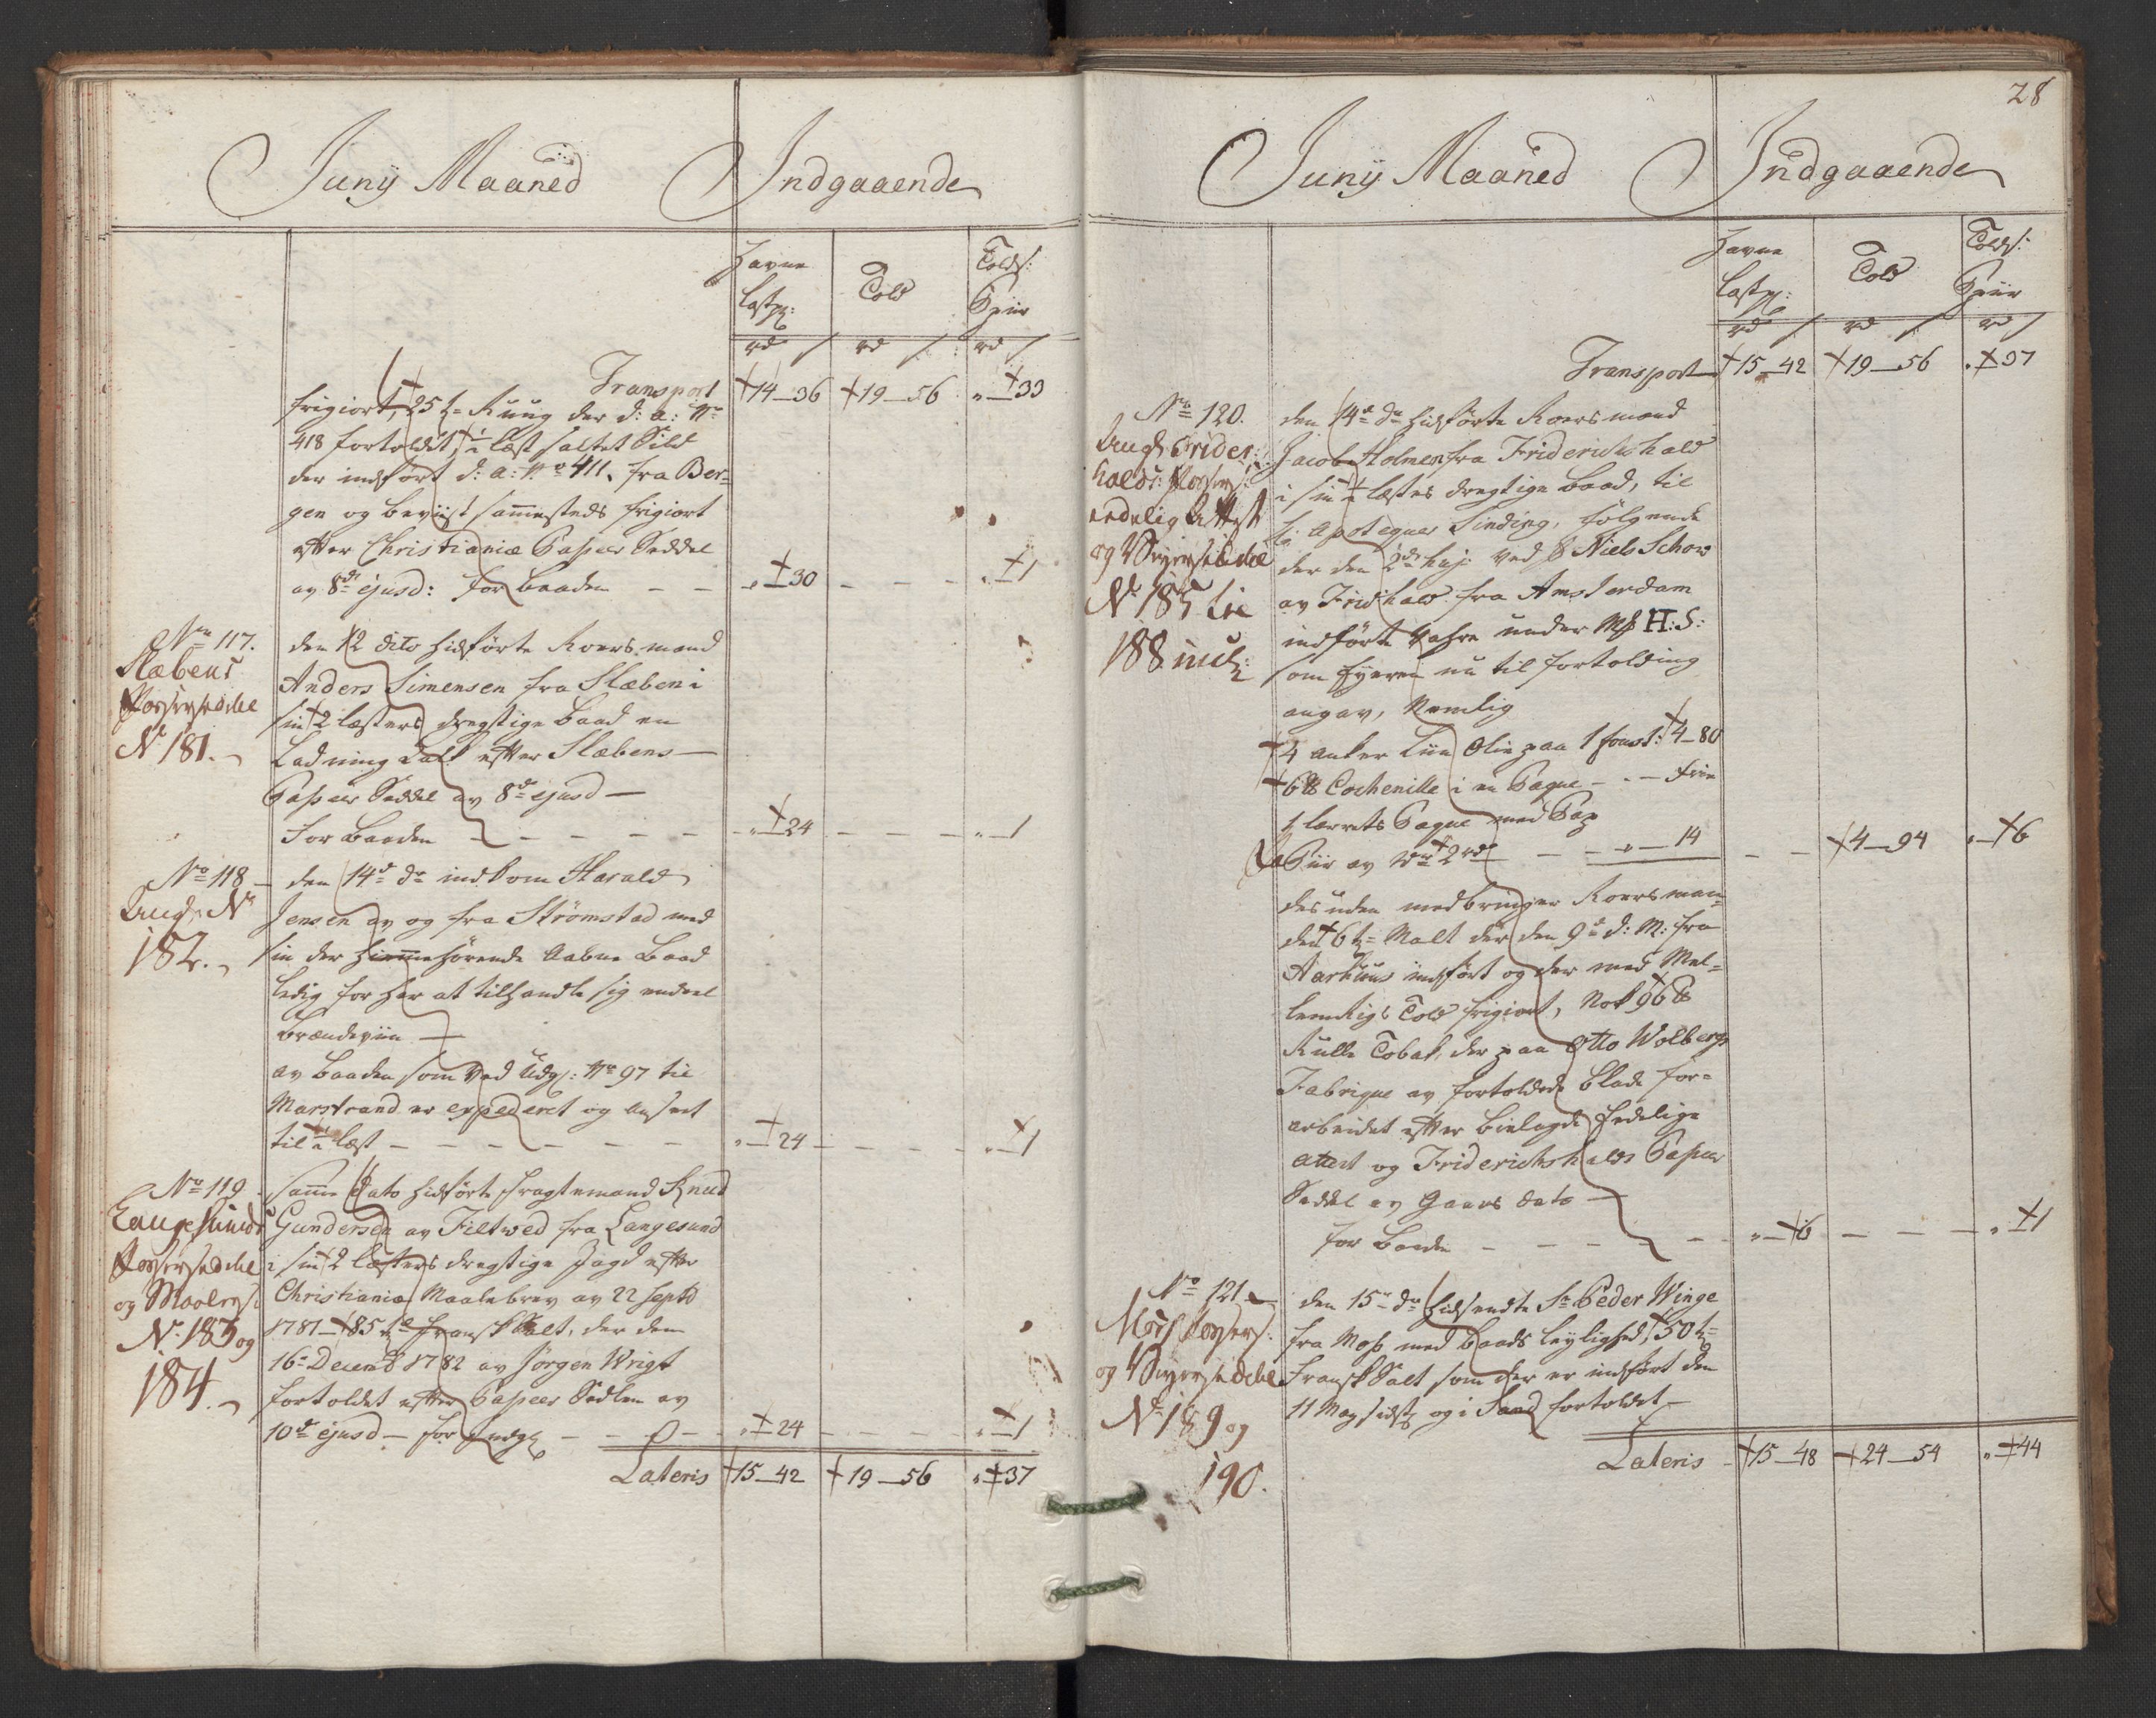 Juny Maaned Indgaaende
Havne
Lastp:
Told
Tolds:
Spiir
rd s rd s rd s
Transport 14_36 19_56 "_33
frigiort, 25 t= Ruug der d: a: No
418 fortoldet, 1 læst saltet Sild
der indført d: a: No 411, fra Ber=
gen og beviist sammesteds frigiort
efter Christianiæ Passeer Seddel
av 8de ejusd: for baaden — — "_30 — — — "_1
No 117.
Slæbens
Passeerseddel
No 181.
den 12 dito hidførte Roersmand
Anders Simensen fra Slæben i
sin 2 læsters drægtige baad en
Ladning Kalk efter Slæbens
Passeer Seddel av 8de ejusd —
for Baaden — — — — — "_24 — — — "_1
No 118
Angs: No
182.
den 14de do indkom Harald
Jensen av og fra Strømstad med
sin der hiemmehørende Aabne Baad
ledig for her at tilhandle sig endeel
Brændeviin —
av baaden som ved Udg: No 97 til
Marstrand er expederet og anført
til 1 læst — — — — — — "_24 — — — — "_1
No 119
Langesunds
Passerseddel
og Maalers:
No 183 og
184.
samme Dato hidførte Fragtemand Knud
Gundersen av Filtved fra Langesund
i sin 2 læsters drægtige Jagt efter
Christianiæ Maalebrev av 22 Septb
1781 — 85 td Fransk Salt, der den
16 Decemb 1782 av Jørgen Wrigt
fortoldet efter Passeer Sedlen av
10de ejusd — for — — — "_24 — — — "_1
Lateris 15_42 19_56 "_37
28
Juny Maaned Indgaaende
Havne
Lastp:
Told
Tolds:
Spiir
rd s rd s rd s
Transport 15_42 19_56 "_37
No 120.
Angs: Frider:
halds: Passers:
endelig Attest
og Veyerseddel
No 185 til
188 incl:
den 14de do hidførte Roersmand
Jacob Holmen fra Friderichshald
i sin læsters drægtige baad, til
Hr Apoteqver Sinding, følgende
der den 2de huj: ved S Niels Schow
av Fridrhald fra Amsterdam
indførte Vahre under Mk H:S:
som Eyeren nu til fortolding
angav, Nemlig
4 anker Liin Olie paa 1 foust: 4_80
6 lb Cochenille i en Paqve — . — frie
1 lærrets Paqve med
av 2 rd — — "_14 — — 4_94 "_6
desuden medbringer Roersman=
den 6 t= Malt der den 9de d: M: fra
Aarhuus indført og der med Mel=
lemrigs Told frigiort, Nok 96 lb
Rulle Tobak, der paa Otto Wolbergs
Fabriqve av fortoldede Blade for=
arbeidet efter bielagde Eedelige
Attest og Friderichshalds Passeer
Seddel av Gaars dato —
for Baaden — — — — — "_6 — — — "_1
No 121
Moss Passers:
og Veyerseddel
No 189 og
190.
den 15de do hidsendte Sr Peder Winge
fra Moss med baads leylighed, 50 t=
Fransk Salt som der er indført den
11 May sidst og i fortoldet
Lateris 15_48 24_54 "_44